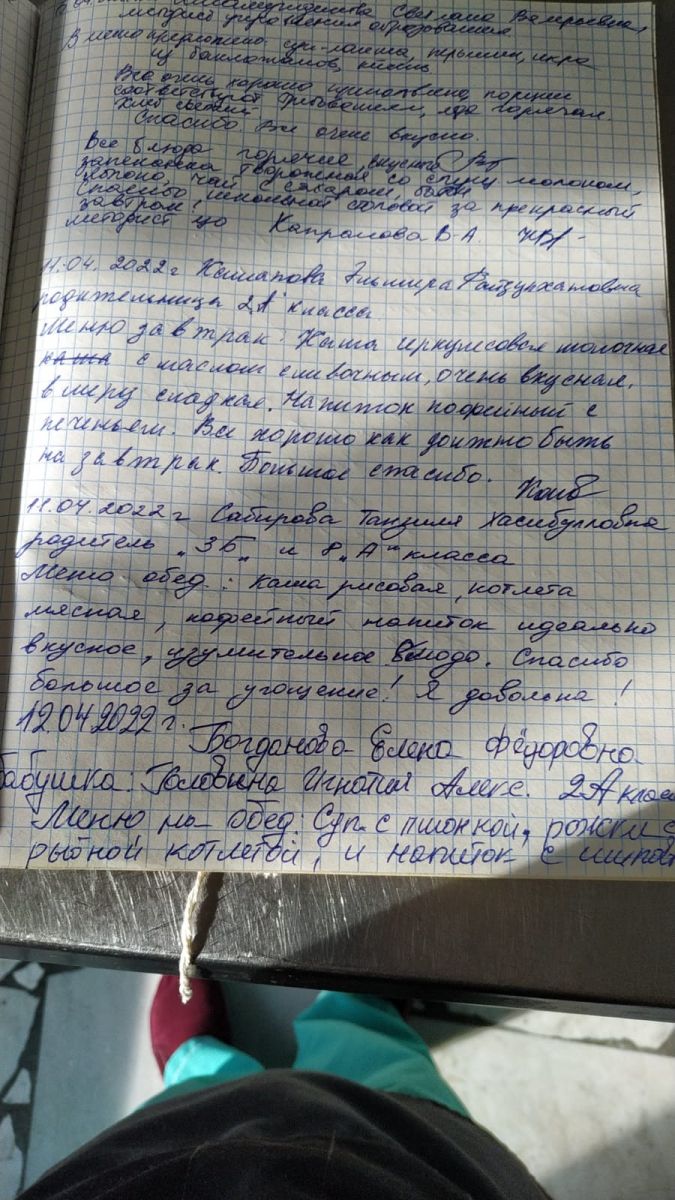 Светлана Валерьевна,
управления образования
В меню предложено: суп-лапша, икра
из баклажанов, кисель
Все очень хорошо приготовлено, порции
соответствуют еда горячая.
Хлеб свежий.
Спасибо. Все очень вкусно.
Все блюда горячие, вкусные
запеканка творожная со сгущ молоком,
яблоко, чай с сахаром,
Спасибо школьной столовой за прекрасный
завтрак!
методист цо Капралова В.А.
11.04.2022г Эльмира
родительница 2А класса
Меню завтрак: Каша геркулесовая молочная
каша с маслом сливочным, очень вкусная,
в меру сладкая. Напиток кофейный с
печеньем. Все хорошо как должно быть
на завтрак. Большое спасибо.
11.04.2022г Сабирова Танзиля Хасибулловна
родитель „3Б„ и 8„А" класса
Меню обед: каша рисовая, котлета
мясная, кофейный напиток идеально
вкусное, изумительное блюдо. Спасибо
большое за угощение! Я довольна!
12.04.2022г.
Богданова Елена Фёдоровна
бабушка: Головина Игнатия Алекс. 2А клас
Меню на обед: Суп с пшонкой, рожки с
рыбной котлетой, и напиток с шипов